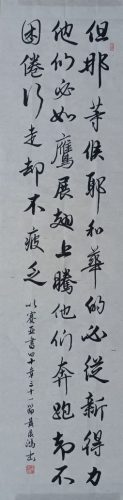 但那等候耶和華的必從新得力
他們必如鷹展翅上騰他們奔跑却不
困倦行走却不疲乏
以賽亞書四十章三十一節